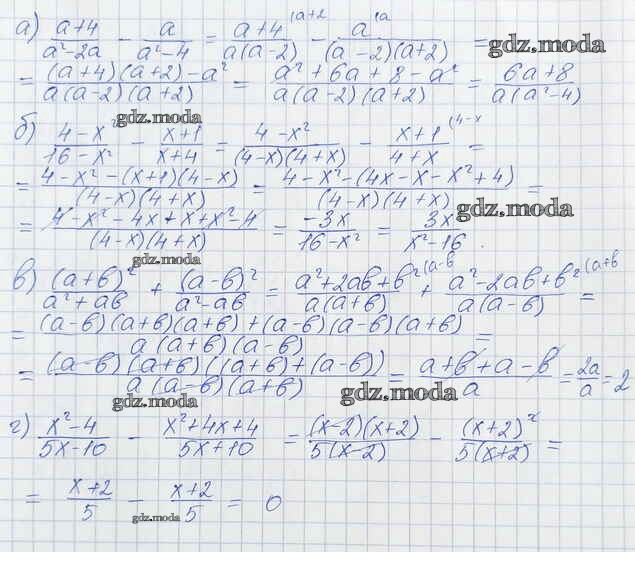 а) (a+4)/(a²-2a) - a/(a²-4) = (a+4)/(a(a-2)) (a+2 - a/((a-2)(a+2)) (a =
gdz.moda
= ((a+4)(a+2)-a²)/(a(a-2)(a+2)) = (a²+6a+8-a²)/(a(a-2)(a+2)) = (6a+8)/(a(a²-4))
gdz.moda
б) (4-x²)/(16-x²) - (x+1)/(x+4) = (4-x²)/((4-x)(4+x)) - (x+1)/(4+x) (4-x =
= (4-x²-(x+1)(4-x))/((4-x)(4+x)) = (4-x²-(4x-x-x²+4))/((4-x)(4+x)) =
gdz.moda
= (4-x²-4x+x+x²-4)/((4-x)(4+x)) = (-3x)/(16-x²) = 3x/(x²-16).
gdz.moda
в) (a+b)²/(a²+ab) + (a-b)²/(a²-ab) = (a²+2ab+b²)/(a(a+b)) (a-b + (a²-2ab+b²)/(a(a-b)) (a+b =
= ((a-b)(a+b)(a+b)+(a-b)(a-b)(a+b))/(a(a+b)(a-b)) =
= ((a-b)(a+b)((a+b)+(a-b)))/(a(a-b)(a+b)) = (a+b+a-b)/a = 2a/a = 2
gdz.moda gdz.moda
г) (x²-4)/(5x-10) - (x²+4x+4)/(5x+10) = ((x-2)(x+2))/(5(x-2)) - (x+2)²/(5(x+2)) =
= (x+2)/5 - (x+2)/5 = 0
gdz.moda
gdz.moda